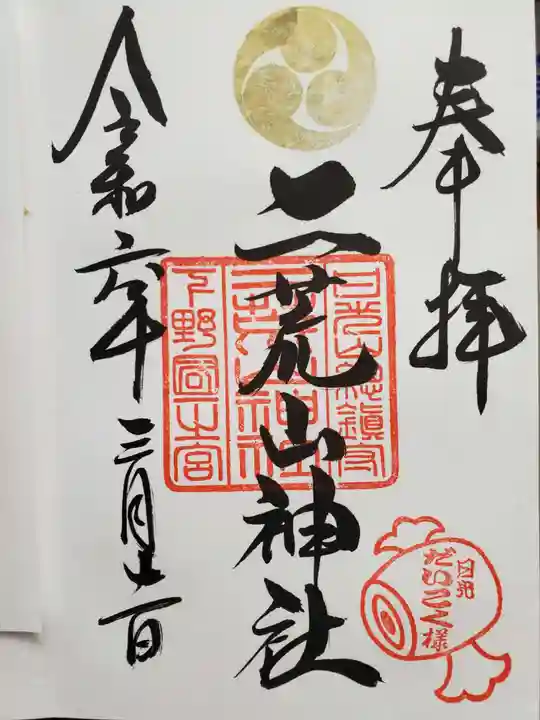 奉拝
二荒山神社
日光山總鎮守
二荒山神社
下野國一之宮
令和六年三月十二日
日光
だいこく様